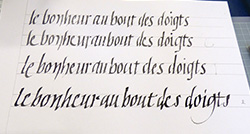 le bonheur au bout des doigts
le bonheur au bout des doigts
le bonheur au bout des doigts
le bonheur au bout des doigts